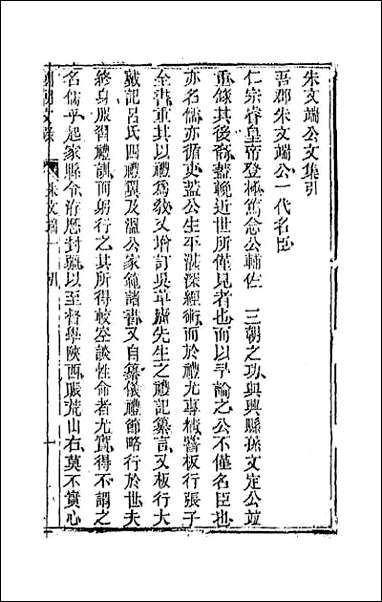 朱文端公文集引
吾郡朱文端公一代名臣
仁宗睿皇帝登極篤念公輔佐　三朝之功與興縣孫文定公竝
重錄其後裔蓋輓近世所僅見者也而以早論之公不僅名臣也
亦名儒亦循吏蓋公生平湛深經術而於禮尤專精嘗板行張子
全書重其以禮為教又增訂吳草廬先生之禮記纂言又板行大
戴記呂氏四禮翼及溫公家範諸書又自纂儀禮節略行於世夫
終身服習禮訓而躬行之其所得較空談性命者尤實得不謂之
名儒乎起家縣令洊歷封疆以至督學陝西賑荒山右莫不實心
朱文端　引　一